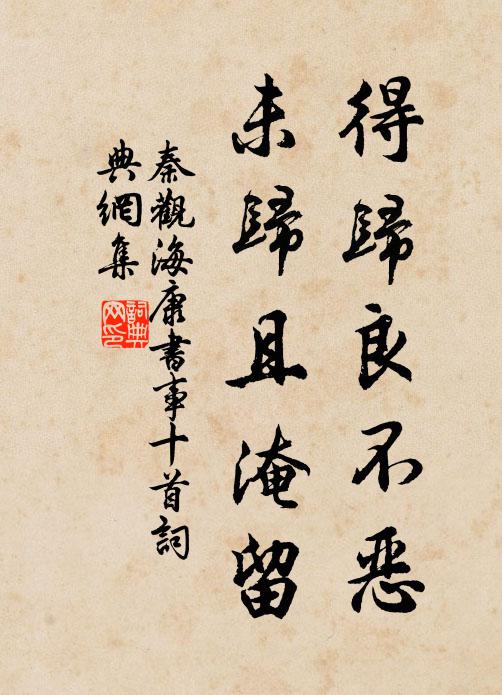 得歸良不惡
未歸且淹留
秦觀海康書事十首詞
典網集
詞典網印